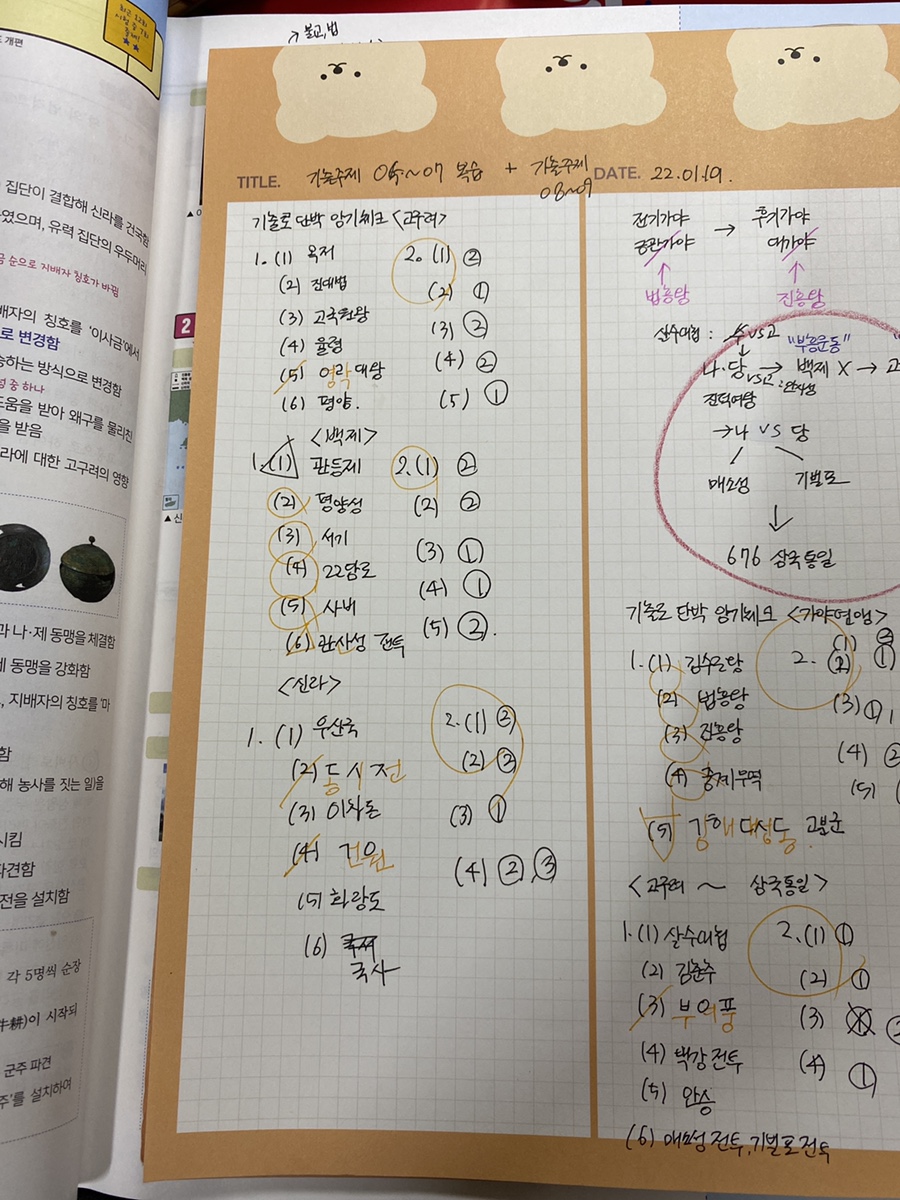 최근 12회
시험 중 7회
출제!
★★
개편
집단이 결합해 신라를 건국함
였으며, 유력 집단의 우두머리
금 순으로 지배자 칭호가 바뀜
배자의 칭호를 '이사금'에서
로 변경함
승하는 방식으로 변경함
성 중 하나
도움을 받아 왜구를 물리친
을 받음
라에 대한 고구려의 영향
과 나·제 동맹을 체결함
제 동맹을 강화함
, 지배자의 칭호를 '마
함
해 농사를 짓는 일)을
시킴
파견함
전을 설치함
각 5명씩 순장
牛耕)이 시작되
군주 파견
주'를 설치하여
2
▲ 신
→ 불교, 법
TITLE. 기출주제 04~07 복습 + 기출주제 08~09
DATE. 22.01.19.
기출로 단박 암기체크 <고구려>
1. (1) 옥저
(2) 진대법
(3) 고국천왕
(4) 율령
(5) 영락대왕
(6) 평양.
2. (1) ②
(2) ①
(3) ②
(4) ②
(5) ①
<백제>
1. (1) 관등제
(2) 평양성
(3) 서기
(4) 22담로
(5) 사비
(6) 관산성 전투
2. (1) ②
(2) ②
(3) ①
(4) ①
(5) ②.
<신라>
1. (1) 우산국
(2) 동시전
(3) 이차돈
(4) 건원
(5) 화랑도
(6) 국사
2. (1) ③
(2) ③
(3) ①
(4) ②, ③
전기가야 → 후기가야
금관가야 대가야
법흥왕 진흥왕
살수대첩 : 수vs고
"부흥운동"
나·당 → 백제 X → 고
vs고 : 안시성
진덕여왕
→ 나 vs 당
매소성 기벌포
676 삼국통일
기출로 단박 암기체크 <가야연맹>
1. (1) 김수로왕
(2) 법흥왕
(3) 진흥왕
(4) 중계무역
(5) 김해 대성동 고분군
2. (1) ②
(2) ①
(3) ①,
(4) ②
(5)
<고구려 ~ 삼국통일>
1. (1) 살수대첩
(2) 김춘추
(3) 부여풍
(4) 백강전투
(5) 안승
(6) 매소성 전투, 기벌포 전투
2. (1) ①
(2) ①
(3) ②
(4) ①